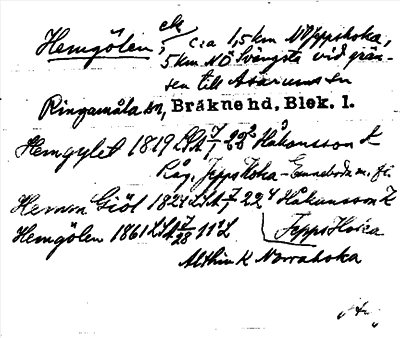 Hemgölen, ek
c:a 1,5 km NO Jeppshoka,
5 km NÖ Svängsta vid grän-
sen till Asarums sn
Ringamåla sn, Bräkne hd, Blek. l.
Hemgylet 1819 LSA 7/1 22² Håkansson K
Råg. Jeppshoka - Enneboda m. fl.
Hemm Giöl 1824 LSA 7/1 22⁴ Håkansson K
Hemgölen 1861 LSA 7/28 11² L Jeppshoka
Althin K Norrahoka